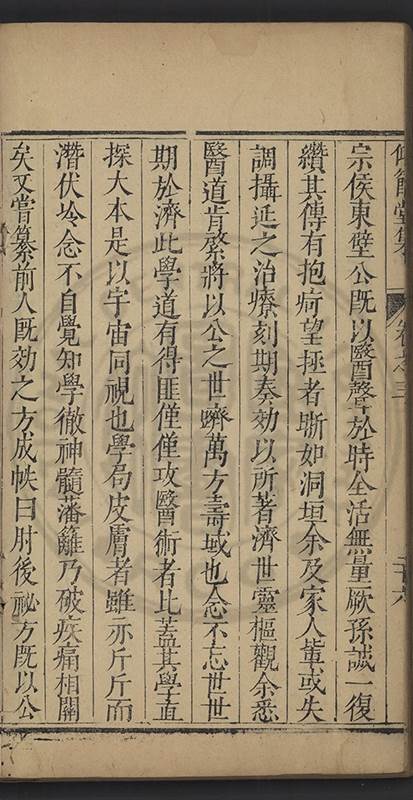 仰節堂集 卷之三 二十六
宗侯東壁公既以醫聲於時全活無量厥孫誠一復
纘其傳有抱疴望拯者晰如洞垣余及家人輩或失
調攝延之治療刻期奏効以所著濟世靈樞觀余悉
醫道肯綮將以公之世躋萬方壽域也念不忘世世
期於濟此學道有得匪僅僅攻醫術者比蓋其學直
探大本是以宇宙同視也學局皮膚者雖亦斤斤而
潛伏坽念不自覺知學徹神髓藩籬乃破疾痛相關
矣又嘗纂前人既効之方成帙曰肘後祕方既以公